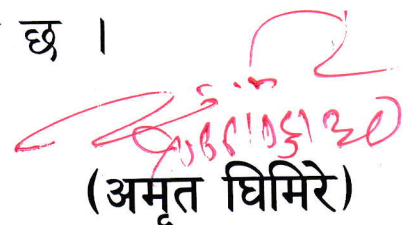 छ ।
(अमृत घिमिरे)